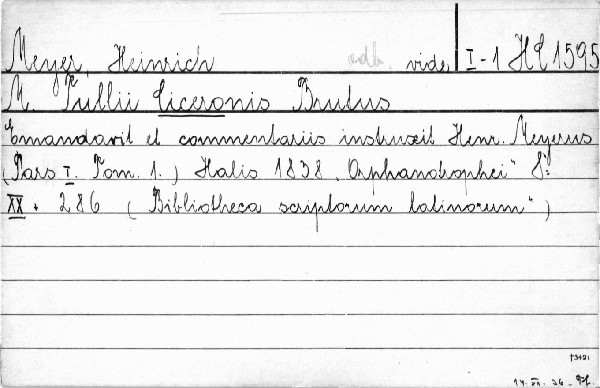 Meyer, Heinrich odb. vide I-1 HE 1595
M. Tullii Ciceronis Brutus
Emandavit et commentariis instruxit Henr. Meyerus
(Pars I. Tom. 1.) Halis 1838 „Orphanotrophei“ 8°
XX + 286 („Bibliotheca scriptorum latinorum“)
†3421
14. XII. 36.